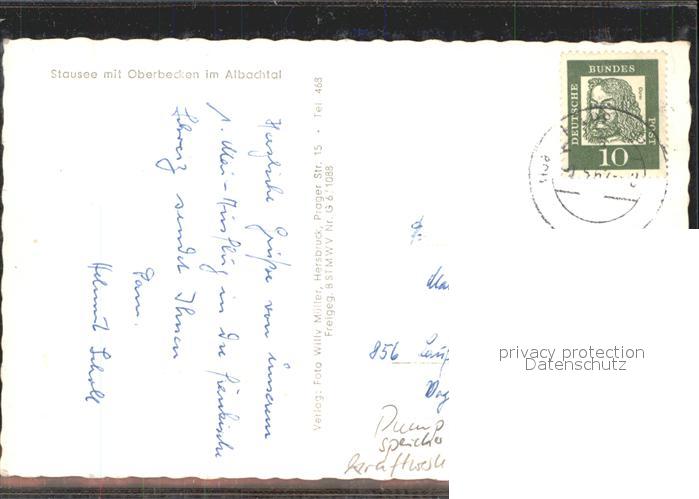 Stausee mit Oberbecken im Albachtal
Herzliche Grüße von unserem
1. Mai-Ausflug in die fränkische
Schweiz sendet Ihnen
Fam.
Helmut Scholl
Verlag: Foto Willy Müller, Hersbruck, Prager Str. 15 • Tel. 468
Freigeg. BSTMWV Nr. G 6/1088
DEUTSCHE
BUNDES
POST
Dürer
10
856
Pump
speicher
kraftwerk
privacy protection
Datenschutz